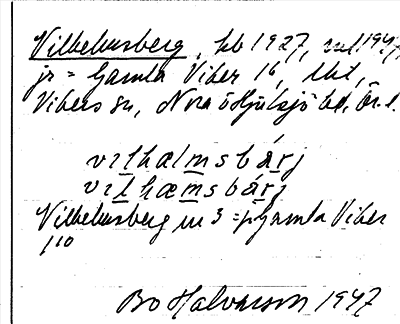 Vilhelmsberg, hb 1927, 1947,
jr = Gamla Viber 16, lht,
Vibers sn, Nora o Hjulsjö bd, Ör. l.
vɪlhælmsbárj
vɪlhæmsbárj
Vilhelmsberg nr 3 = på Gamla Viber
1/10
Bo Halvarson 1947